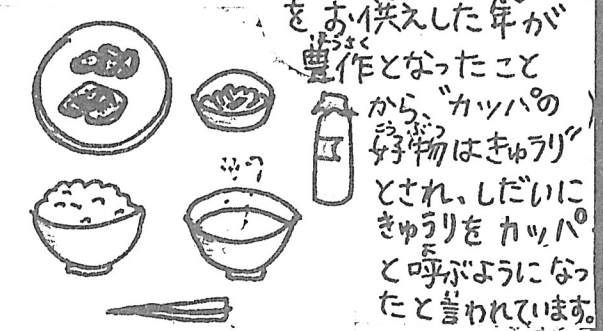 をお供えした年が
豊作となったこと
から、“カッパの
好物はきゅうり”
とされ、しだいに
きゅうりをカッパ
と呼ぶようになっ
たと言われています。